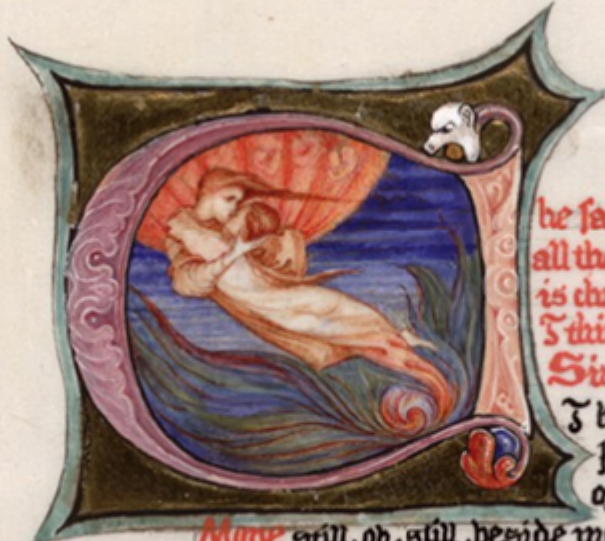 he sa
all the
is cha
T thi
Si
T h
Mone still, oh, still, beside m